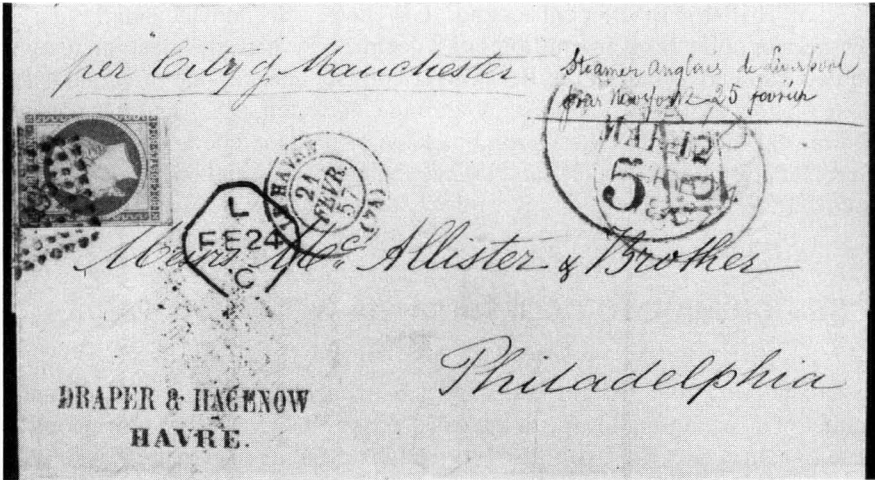 per City of Manchester
Steamer Anglais de Liverpool
pour New York 25 fevrier
LE HAVRE
21
FEVR.
57
(74)
MAR 12
5
L
FE24
C
Messrs Mc. Allister & Brother
Philadelphia
DRAPER & HAGENOW
HAVRE.